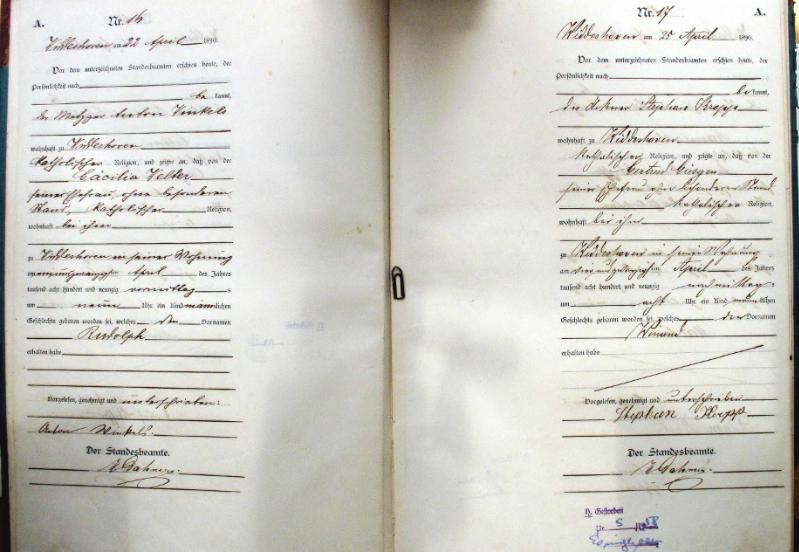 A.
Nr. 16
am 22 April 1890.
Vor dem unterzeichneten Standesbeamten erschien heute, der
Persönlichkeit nach
be kannt,
der Metzger Anton Winkels
wohnhaft zu
katholischer Religion, und zeigte an, daß von der
Cäcilia Velter
seiner Ehefrau, ohne besonderen
Stand, katholischer Religion,
wohnhaft bei ihm
zu in seiner Wohnung
am April des Jahres
tausend acht hundert und neunzig vormittags
um neun Uhr ein Kind männlichen
Geschlechts geboren worden sei, welches den Vornamen
Rudolph
erhalten habe
Vorgelesen, genehmigt und unterschrieben:
Anton Winkels.
Der Standesbeamte.
Dahmen.
Nr. 17
A.
am 25 April 1890.
Vor dem unterzeichneten Standesbeamten erschien heute, der
Persönlichkeit nach
be kannt,
der Ackerer Stephan
wohnhaft zu
katholischer Religion, und zeigte an, daß von der
Gertrud
seiner Ehefrau ohne besonderen Stand
katholischer Religion,
wohnhaft bei ihm
zu in seiner Wohnung
am vier und zwanzigsten April des Jahres
tausend acht hundert und neunzig nachmittags
um acht Uhr ein Kind männlichen
Geschlechts geboren worden sei, welches den Vornamen
erhalten habe
Vorgelesen, genehmigt und unterschrieben
Stephan
Der Standesbeamte.
Dahmen.
H. Gestorben
Nr. 5